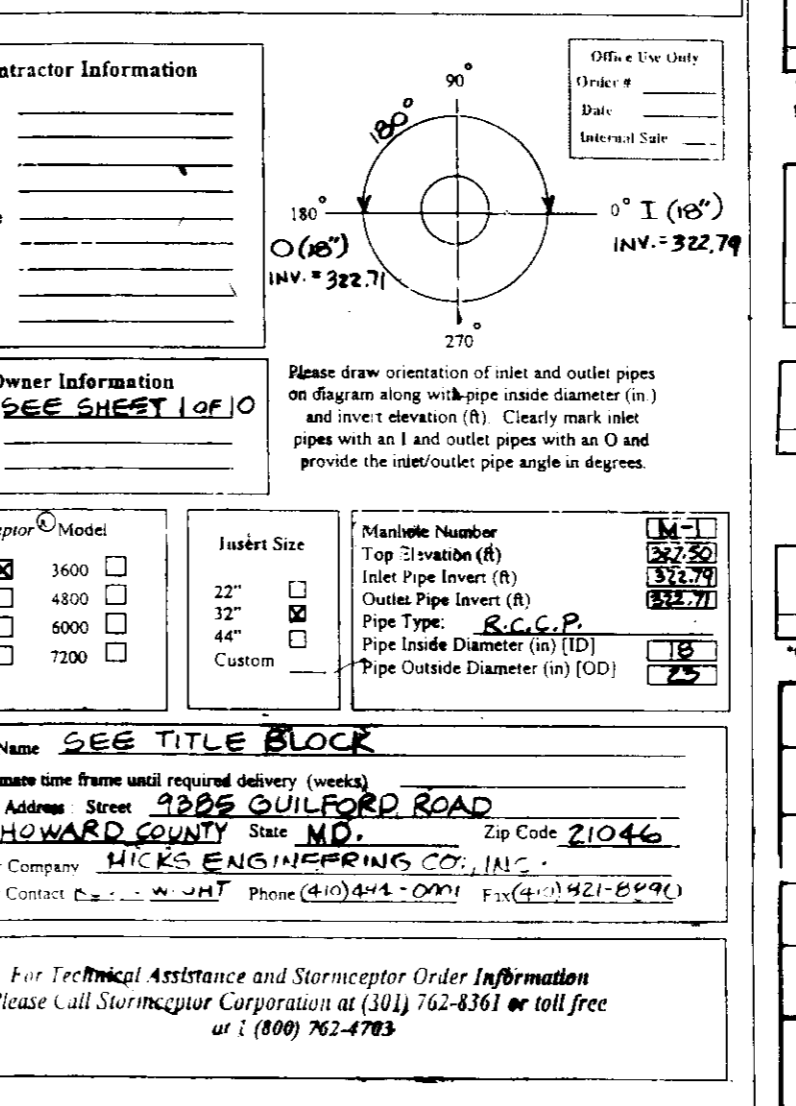 ntractor Information
Office Use Only
Order #
Date
Internal Sale
90°
180°
180°
0° I (18")
INV.=322.79
O(18")
INV.=322.71
270°
Please draw orientation of inlet and outlet pipes
on diagram along with pipe inside diameter (in.)
and invert elevation (ft). Clearly mark inlet
pipes with an I and outlet pipes with an O and
provide the inlet/outlet pipe angle in degrees.
Owner Information
SEE SHEET 1 OF 10
eptor® Model
3600
4800
6000
7200
Insert Size
22"
32"
44"
Custom
Manhole Number M-1
Top Elevation (ft) 327.50
Inlet Pipe Invert (ft) 322.79
Outlet Pipe Invert (ft) 322.71
Pipe Type: R.C.C.P.
Pipe Inside Diameter (in) [ID] 18
Pipe Outside Diameter (in) [OD] 23
Name SEE TITLE BLOCK
mate time frame until required delivery (weeks)
Address: Street 9385 GUILFORD ROAD
HOWARD COUNTY State MD. Zip Code 21046
Company HICKS ENGINEERING CO., INC.
Contact Phone (410) Fax (410)
For Technical Assistance and Stormceptor Order Information
Please Call Stormceptor Corporation at (301) 762-8361 or toll free
at 1 (800) 762-4703